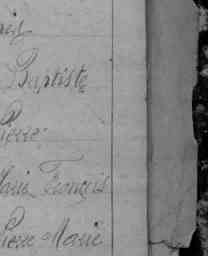 Baptiste
Pierre
Marie François
Pierre Marie